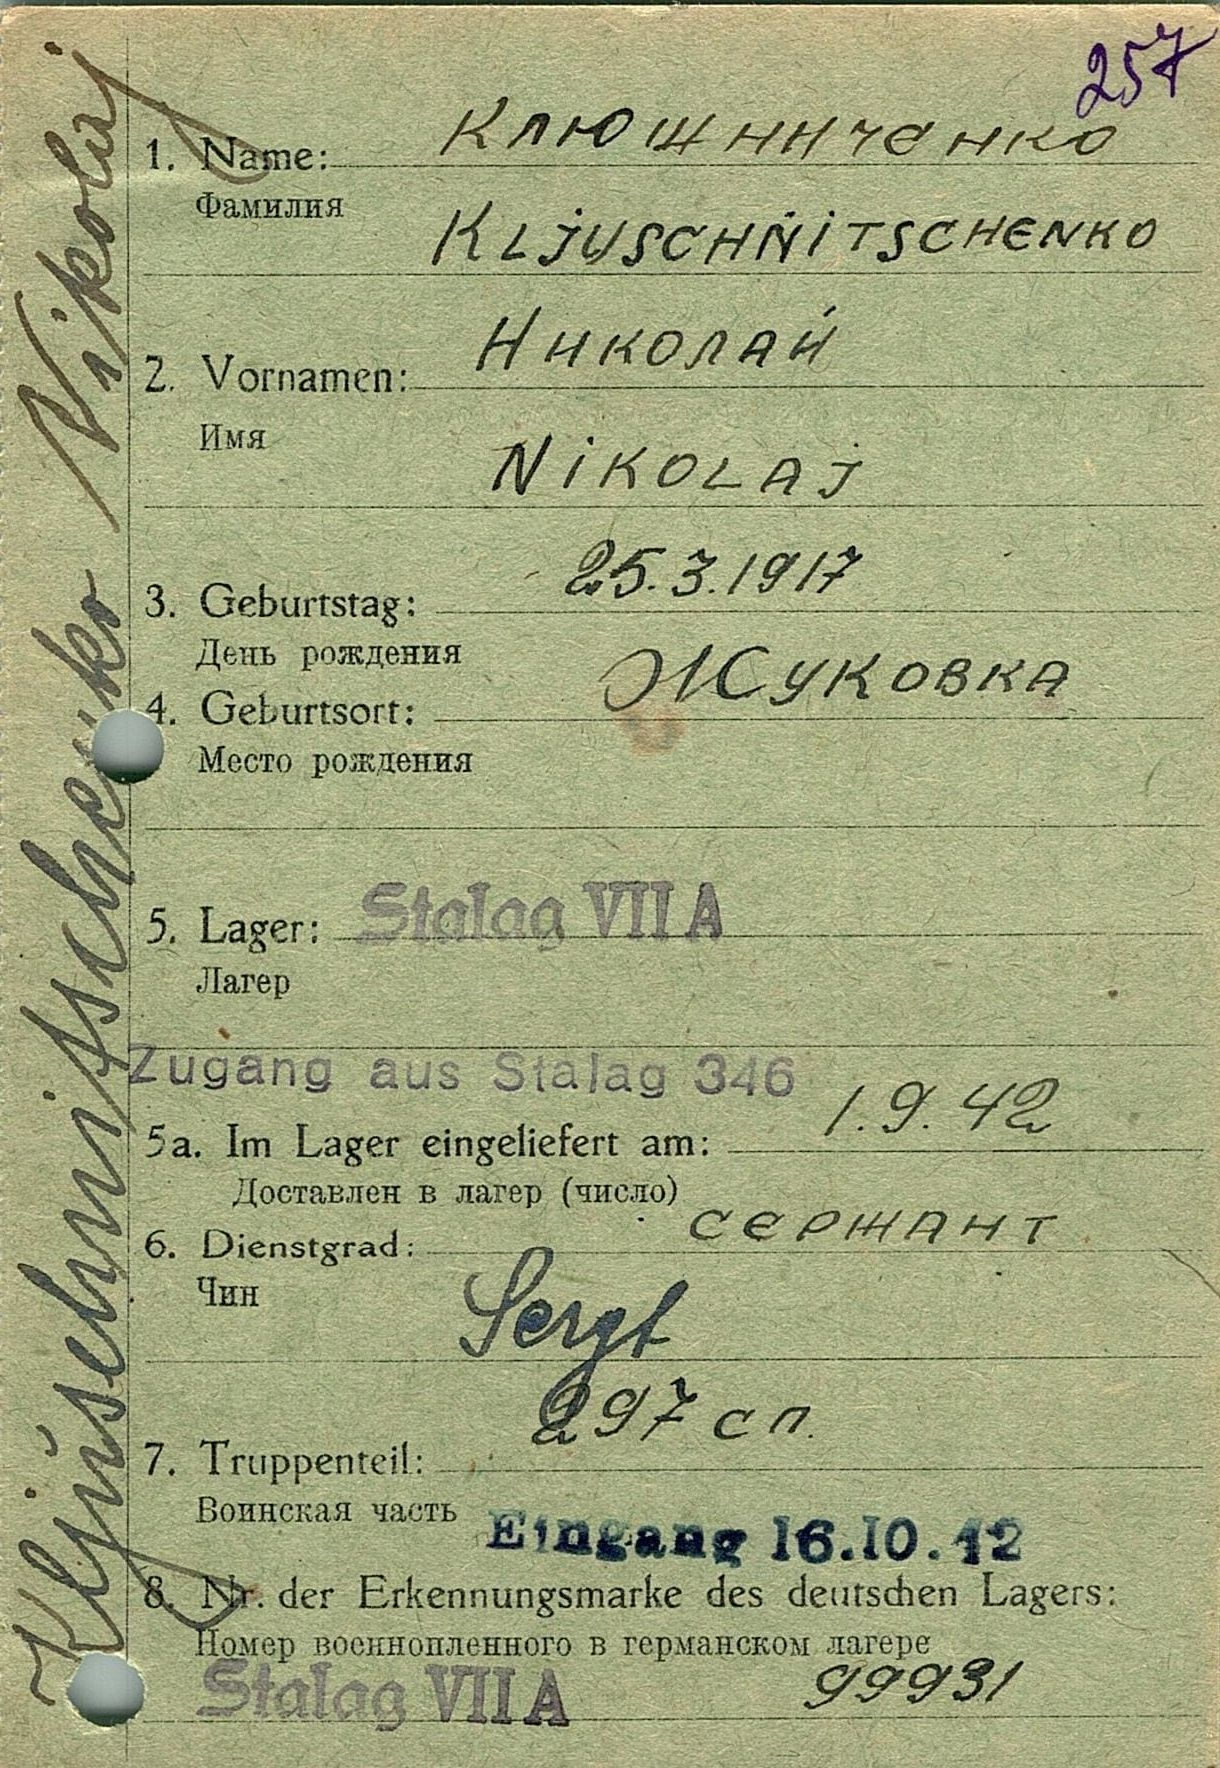 257
1. Name: Клющниченко
Фамилия
KLJUSCHNITSCHENKO
2. Vornamen: Николай
Имя
NIKOLAJ
3. Geburtstag: 25.3.1917
День рождения
4. Geburtsort: Жуковка
Место рождения
5. Lager: Stalag VII A
Лагер
Zugang aus Stalag 346
5a. Im Lager eingeliefert am: 1.9.42
Доставлен в лагер (число)
6. Dienstgrad: сержант
Чин
Sergt
7. Truppenteil: 297 сп.
Воинская часть
Eingang 16.10.42
8. Nr. der Erkennungsmarke des deutschen Lagers:
Номер военнопленного в германском лагере
Stalag VII A 99931
Kljuschnitschenko Nikolaj